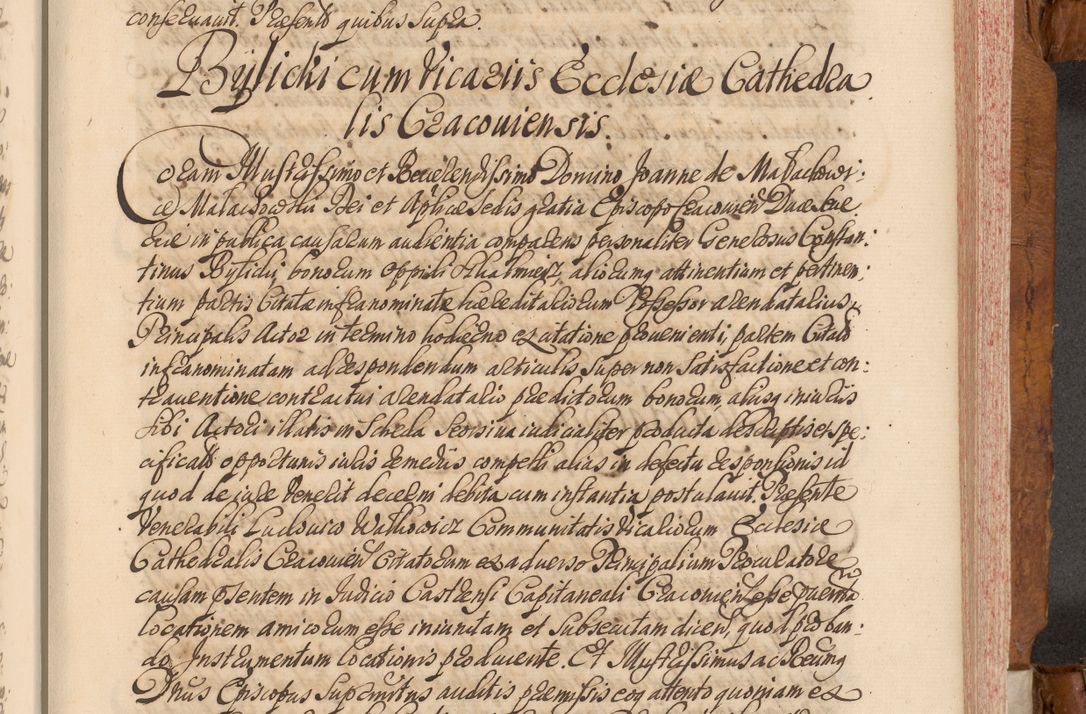 conseruauit. Præsentib quibus Supra.
Bylicki cum Vicariis Ecclesiæ Cathedra
lis Cracouiensis.
Coram Illustrissimo et Reverendissimo Domino Joanne de Małachowi:
ce Małachowski Dei et Aplicæ Sedis gratia Episcopo Cracouien Duce Seve
riæ in publica causarum audientia comparens personaliter Generosus Constan:
tinus Bylicki, bonorum oppidi aliorumq attinentium et pertinen:
tium partis Citatæ infranominatæ hæreditaliorum Possessor arendatarius,
Principalis Actor in termino hodierno ex citatione provenienti, partem Citatā
infranominatam ad respondendum articulis Super non Satisfactione et con:
traventione contractui arendatalio prædictorum bonorum, aliisq iniuriis
Sibi Actori illatis in Scheda Seorsiva iudicialiter producta descriptis et spe:
cificatis opportunis iuris remediis compelli alias in defectu responsionis id
quod de jure venerit decerni debita cum instantia postulauit. Præsente
Venerabili Ludovico Communitatis Vicaliorum Ecclesiæ
Cathedralis Cracouien Citatorum ex adverso Principalium Procuratore
causam psentem in Judicio Castrensi Capitaneali Cracouien esse
locationem amicorum esse iniunctam et Subsecutam dicen, quod pro ban:
do Instrumentum locationis producente. Et Illustrissimus ac Reverē
Dnus Episcopus Supranitus auditis præmissis eoq attento quoniam ex